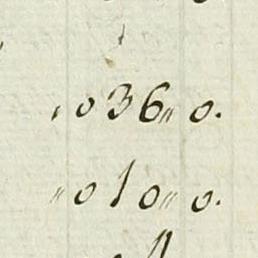 " 0 36 " 0.
" 0 10 " 0.